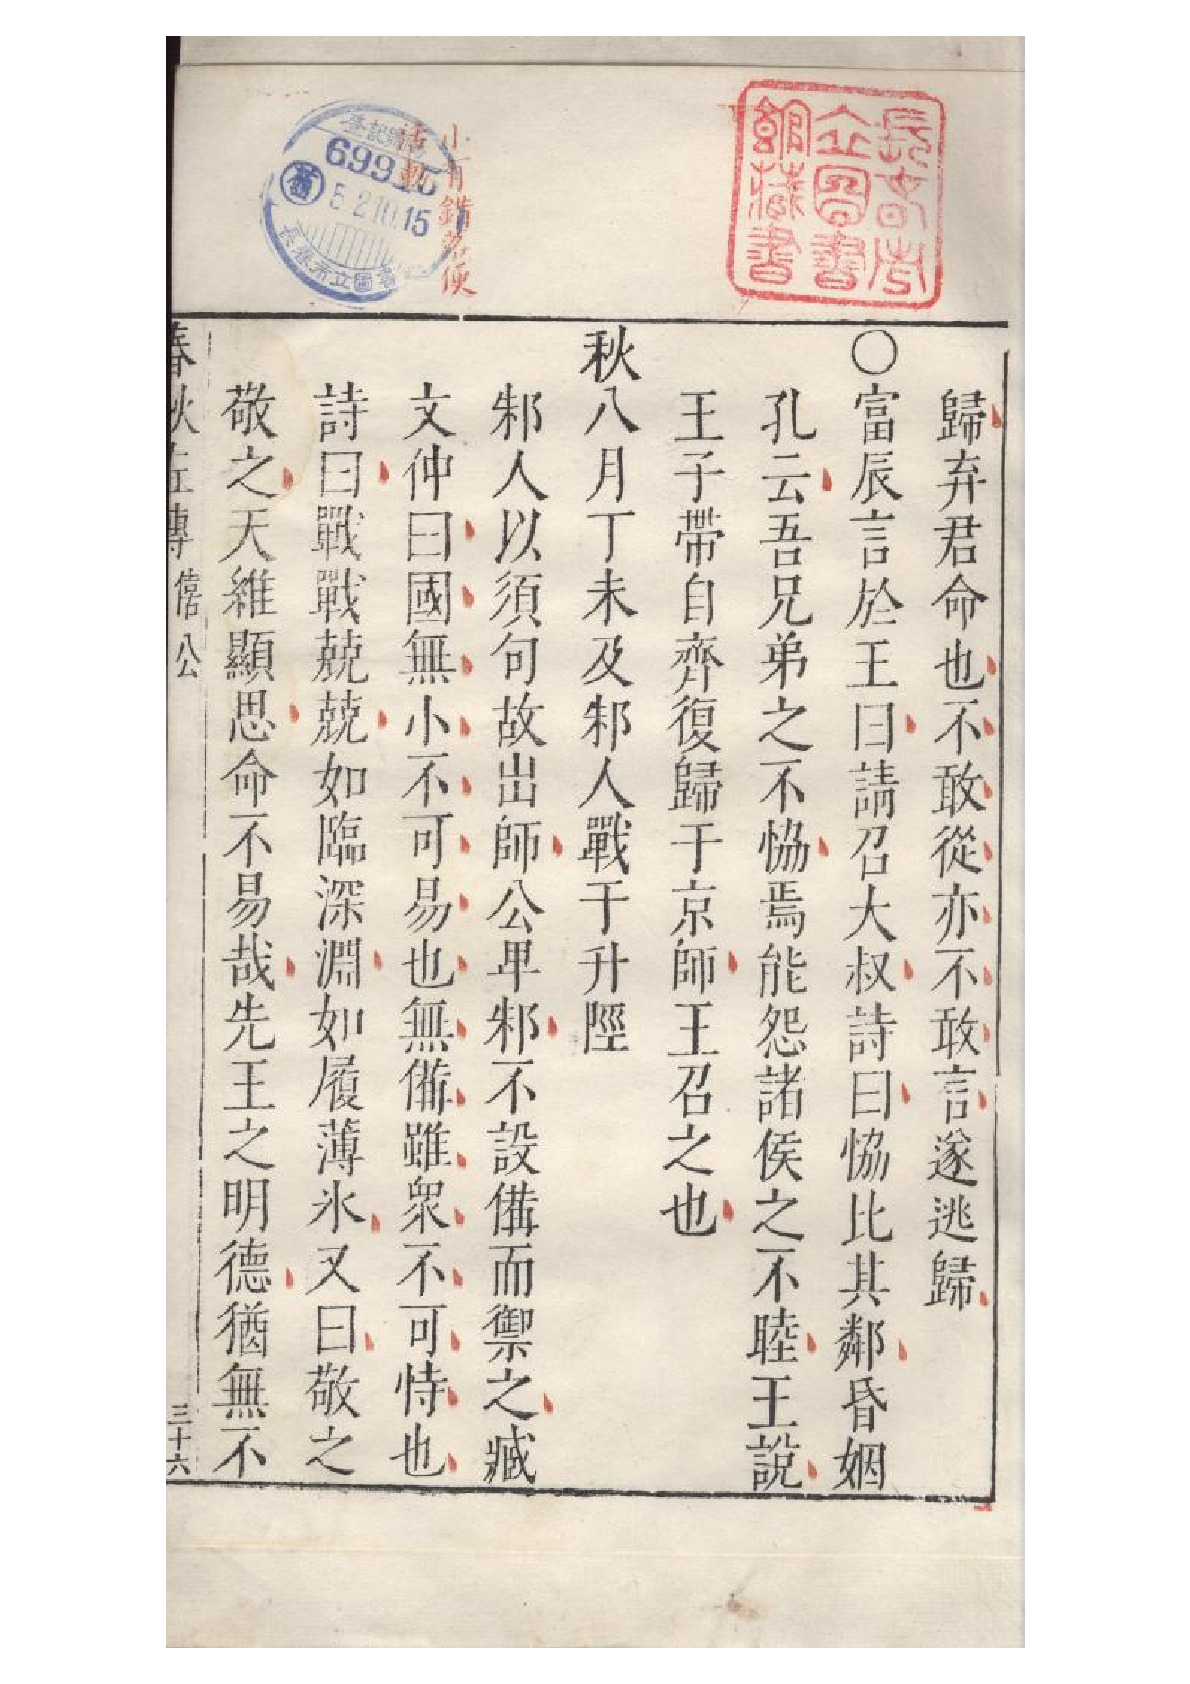 歸弃君命也不敢從亦不敢言遂逃歸
○富辰言於王曰請召大叔詩曰恊比其鄰昏姻
孔云吾兄弟之不恊焉能怨諸侯之不睦王說
王子帶自齊復歸于京師王召之也
秋八月丁未及邾人戰于升陘
邾人以須句故出師公卑邾不設備而禦之臧
文仲曰國無小不可易也無備雖衆不可恃也
詩曰戰戰兢兢如臨深淵如履薄氷又曰敬之
敬之天維顯思命不易哉先王之明德猶無不
春秋左傳 僖公 三十六
小有錯落便
活動
長春市立圖書館藏書
登記號
69915
舊
52.10.15
長春市立圖書館